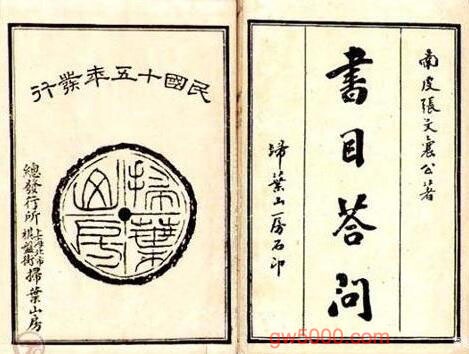 南皮張文襄公著
書目答問
掃葉山房石印
民國十五年發行
掃葉山房
總發行所上海北市棋盤街掃葉山房
gw5000.com